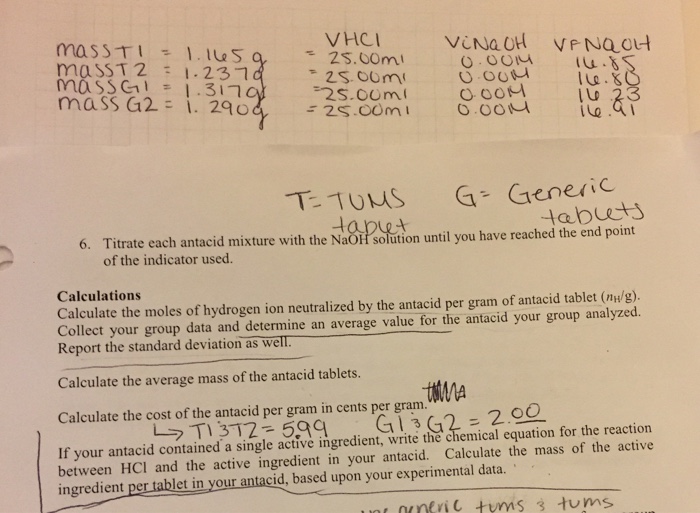 VHCl ViNaOH VFNaOH
massT1 = 1.165g = 25.00ml 0.00M 16.85
massT2 = 1.237g = 25.00ml 0.00M 16.80
massG1 = 1.317g = 25.00ml 0.00M 16.23
massG2 = 1.290g = 25.00ml 0.00M 16.91
T = TUMS tablet G = Generic tablets
6. Titrate each antacid mixture with the NaOH solution until you have reached the end point
of the indicator used.
Calculations
Calculate the moles of hydrogen ion neutralized by the antacid per gram of antacid tablet (nH/g).
Collect your group data and determine an average value for the antacid your group analyzed.
Report the standard deviation as well.
Calculate the average mass of the antacid tablets.
Calculate the cost of the antacid per gram in cents per gram.
↳ T1 & T2 = 5.99 G1 & G2 = 2.00
If your antacid contained a single active ingredient, write the chemical equation for the reaction
between HCl and the active ingredient in your antacid. Calculate the mass of the active
ingredient per tablet in your antacid, based upon your experimental data.
generic tums & tums